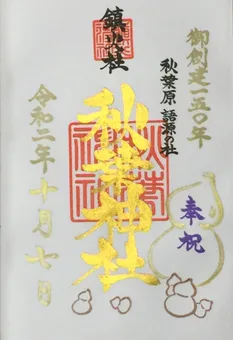 御創建一五〇年
秋葉原 語源の社
奉祝
鎮火社
秋葉神社
令和二年十月七日